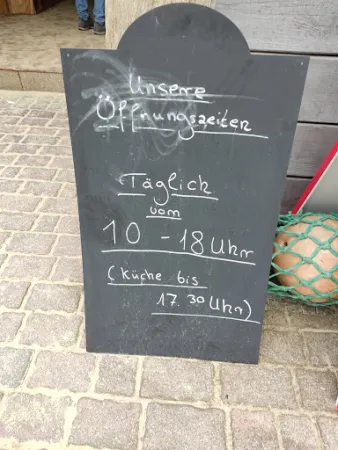 Unsere
Öffnungszeiten
Täglich
vom
10 - 18 Uhr
(Küche bis
17.30 Uhr)